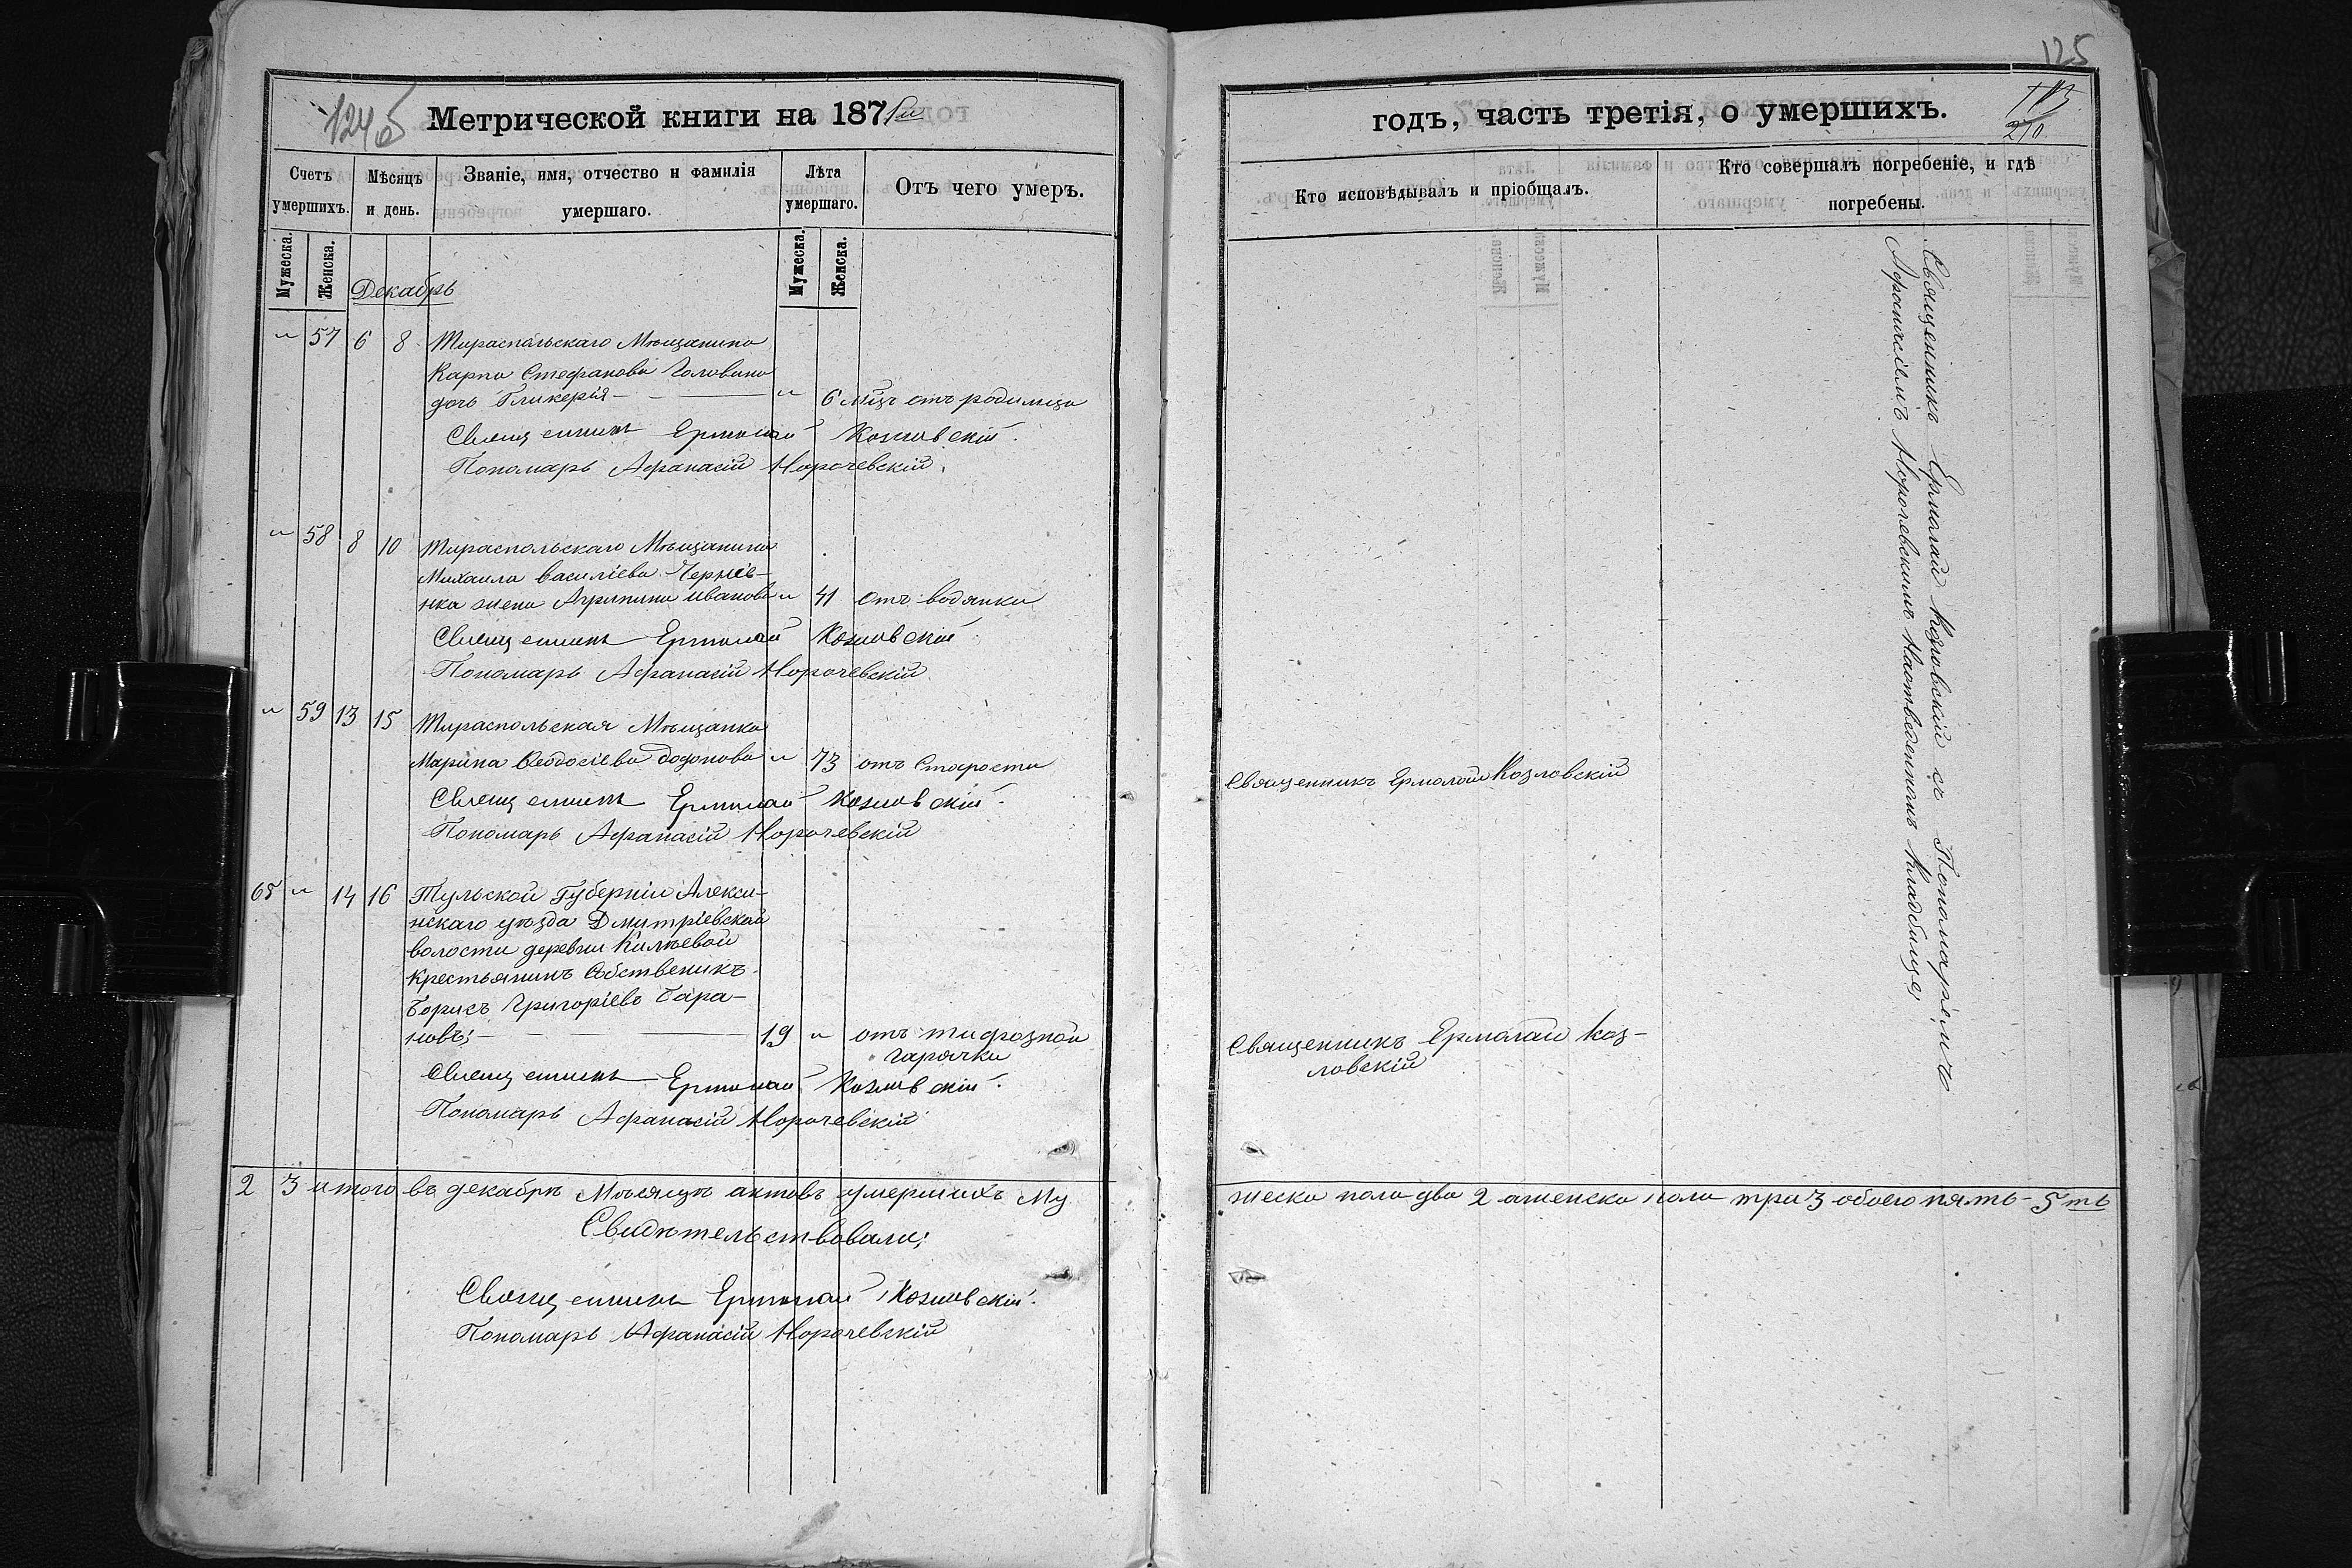 124 об
Метрической книги на 187 1й
Счетъ умершихъ.
Мѣсяцъ и день.
Званіе, имя, отчество и фамилія умершаго.
Лѣта умершаго.
Отъ чего умеръ.
Мужеска.
Женска.
Мужеска.
Женска.
Декабрь
" 57 6 8 Тираспольскаго Мѣщанина
Карпа Стефанова Голована
дочь Гликерія " 6 мцъ отъ родимца
Священникъ Ермолай Козловскій.
Пономарь Афанасій Норочевскій.
" 58 8 10 Тираспольскаго Мѣщанина
Михаила Василіева Черніе-
нка жена Агрипина Иванова " 41 отъ водянки
Священникъ Ермолай Козловскій
Пономарь Афанасій Норочевскій
" 59 13 15 Тираспольская Мѣщанка
Марина Ѳеодосіева Додонова " 73 отъ Старости
Священникъ Ермолай Козловскій.
Пономарь Афанасій Норочевскій
68 " 14 16 Тульской Губерніи Алекси-
нскаго уѣзда Дмитріевской
волости деревни
Крестьянинъ Собственикъ
Борисъ Григоріевъ Бара-
новъ; 19 " отъ тифозной
гарячки
Священникъ Ермолай Козловскій.
Пономарь Афанасій Норочевскій
2 3 итого въ декабрѣ Мѣсяцѣ актовъ умершихъ Му
Свидѣтельствовали;
Священникъ Ермолай Козловскій.
Пономарь Афанасій Норочевскій
125
годъ, часть третія, о умершихъ.
210.
Кто исповѣдывалъ и пріобщалъ.
Кто совершалъ погребеніе, и гдѣ погребены.
Священникъ Ермолай Козловскій съ Пономаремъ
Афанасіемъ Норочевскимъ Наотведенномъ Кладбище,
Священникъ Ермолай Козловскій
Священникъ Ермолай Коз-
ловскій
жеска пола два 2 аженска пола три 3 обоего пять - 5ть